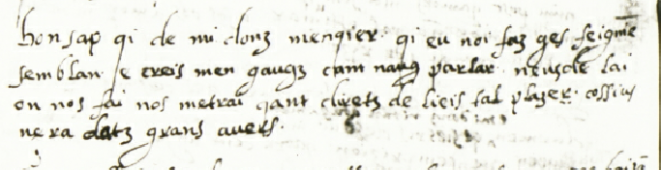 hon sap qi de mi donz mengier. qi eu noi faz ges seigner
semblan e creis men gaugz cam naug parlar. neuscle lai
on nos fai nos metrai qant diretz de lieis tal plazer. cossius
nera datz grans avers.